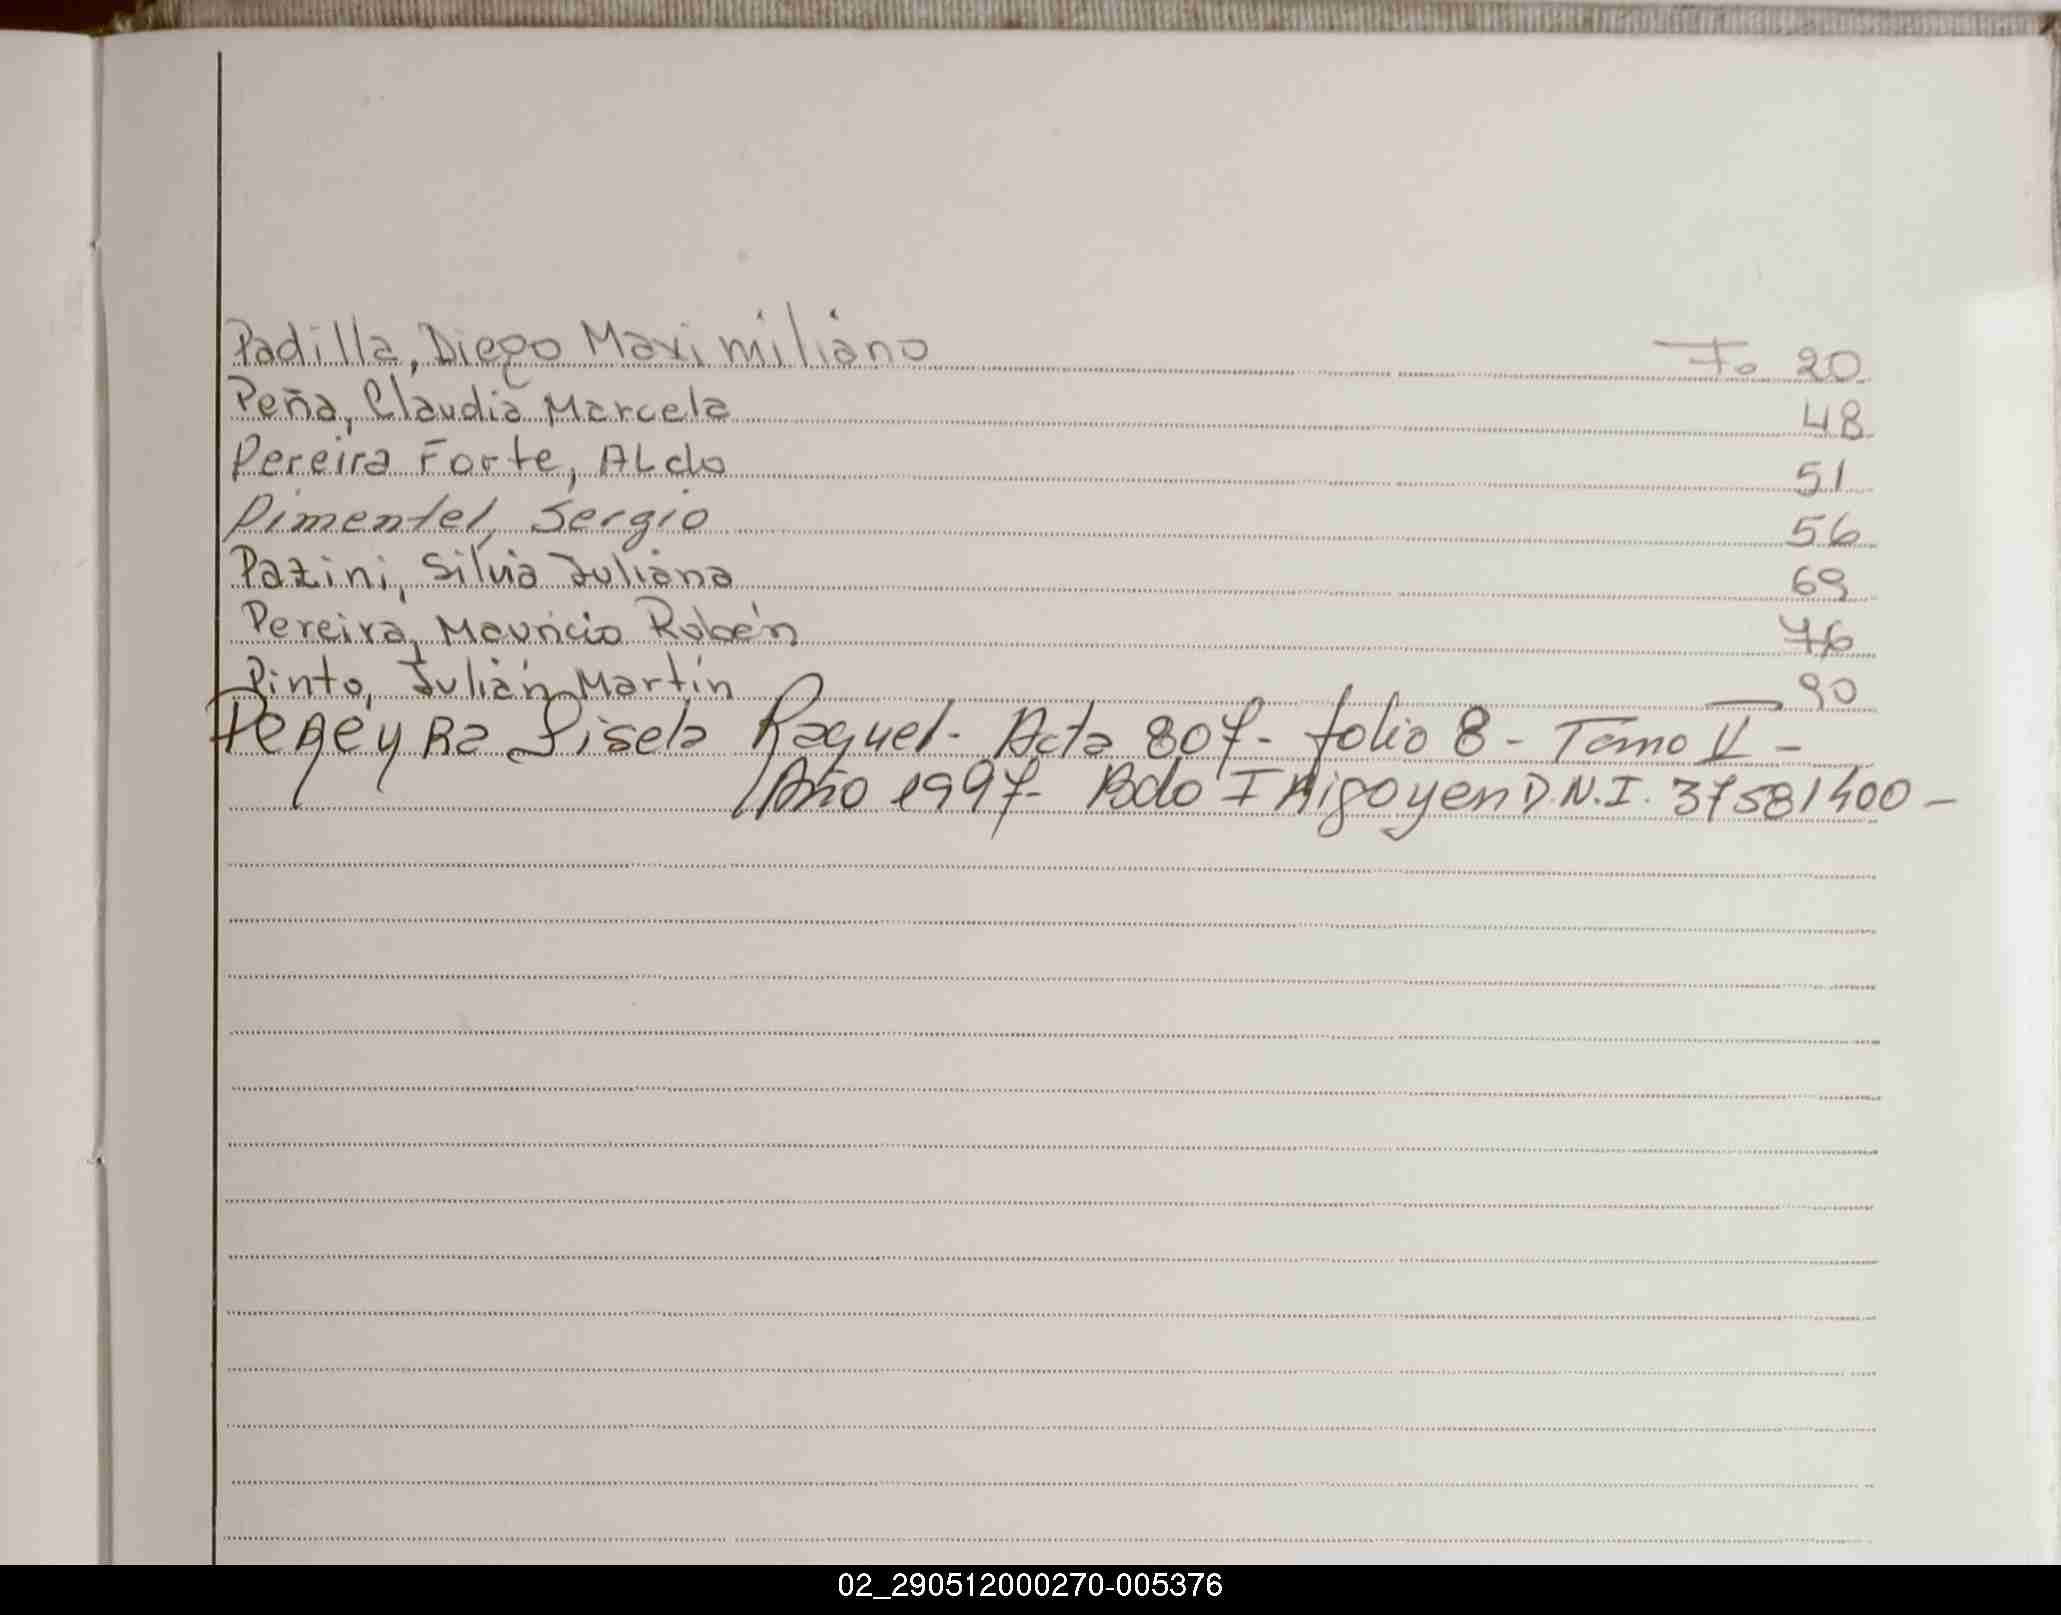 Padilla, Diego Maximiliano Fo 20
Peña, Claudia Marcela 48
Pereira Forte, ALdo 51
Pimentel, Sergio 56
Pazini, Silvia Juliana 69
Pereira, Mauricio Rubén 76
Pinto, Julián Martín 90
PeReyRa Gisela Raquel - Acta 807 - folio 8 - Tomo II -
Año 1997 - Bdo IRigoyen D.N.I. 37581400 -
02_290512000270-005376